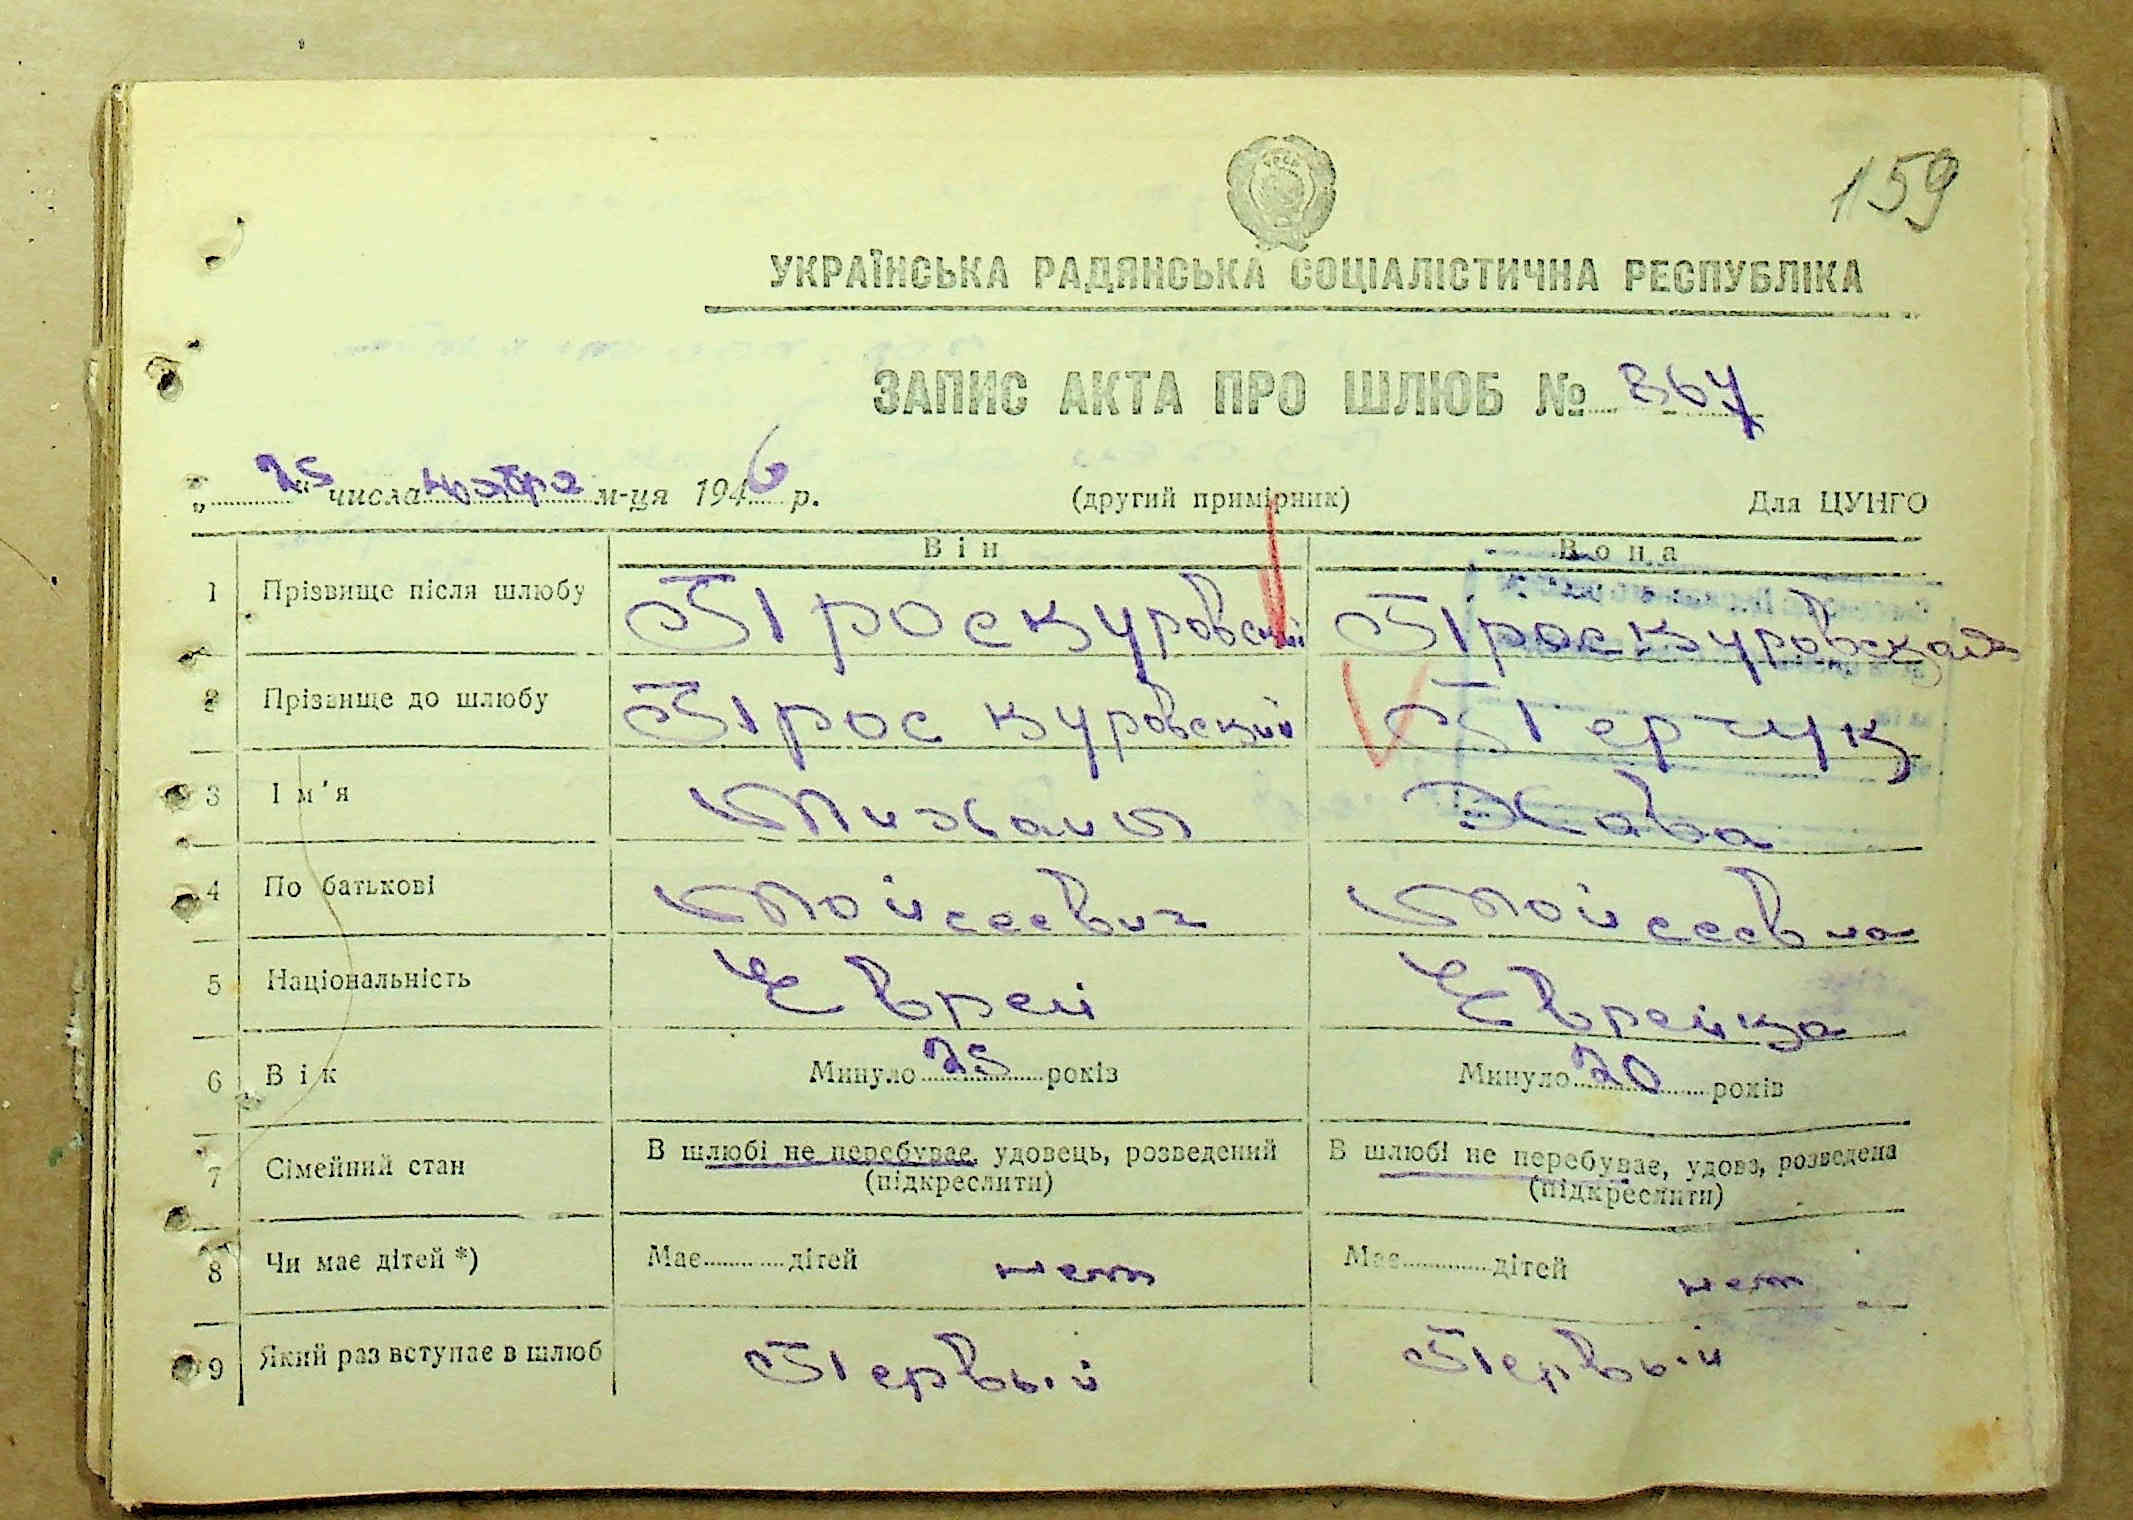 159
УКРАЇНСЬКА РАДЯНСЬКА СОЦІАЛІСТИЧНА РЕСПУБЛІКА
ЗАПИС АКТА ПРО ШЛЮБ № 867
„ 25 “ числа ноября м-ця 1946 р. (другий примірник) Для ЦУНГО
Він Вона
1 Прізвище після шлюбу Проскуровский Проскуровская
2 Прізвище до шлюбу Проскуровский Перчук
3 Ім'я Михаил Хава
4 По батькові Мойсеевич Мойсеевна
5 Національність Еврей Еврейка
6 Вік Минуло 25 років Минуло 20 років
7 Сімейний стан В шлюбі не перебуває, удовець, розведений В шлюбі не перебуває, удова, розведена
(підкреслити) (підкреслити)
8 Чи має дітей *) Має дітей нет Має дітей нет
9 Який раз вступає в шлюб Первый Первый